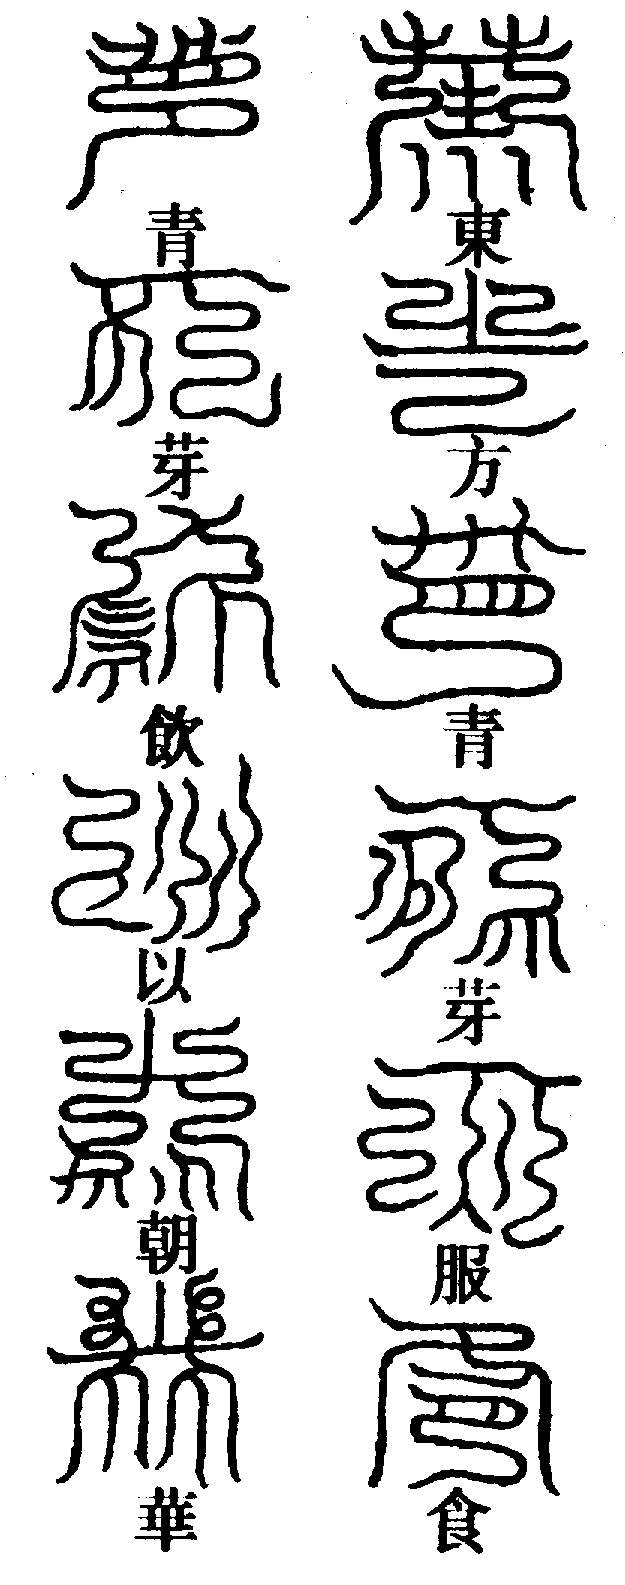 東方青芽服食
青芽飲以朝華